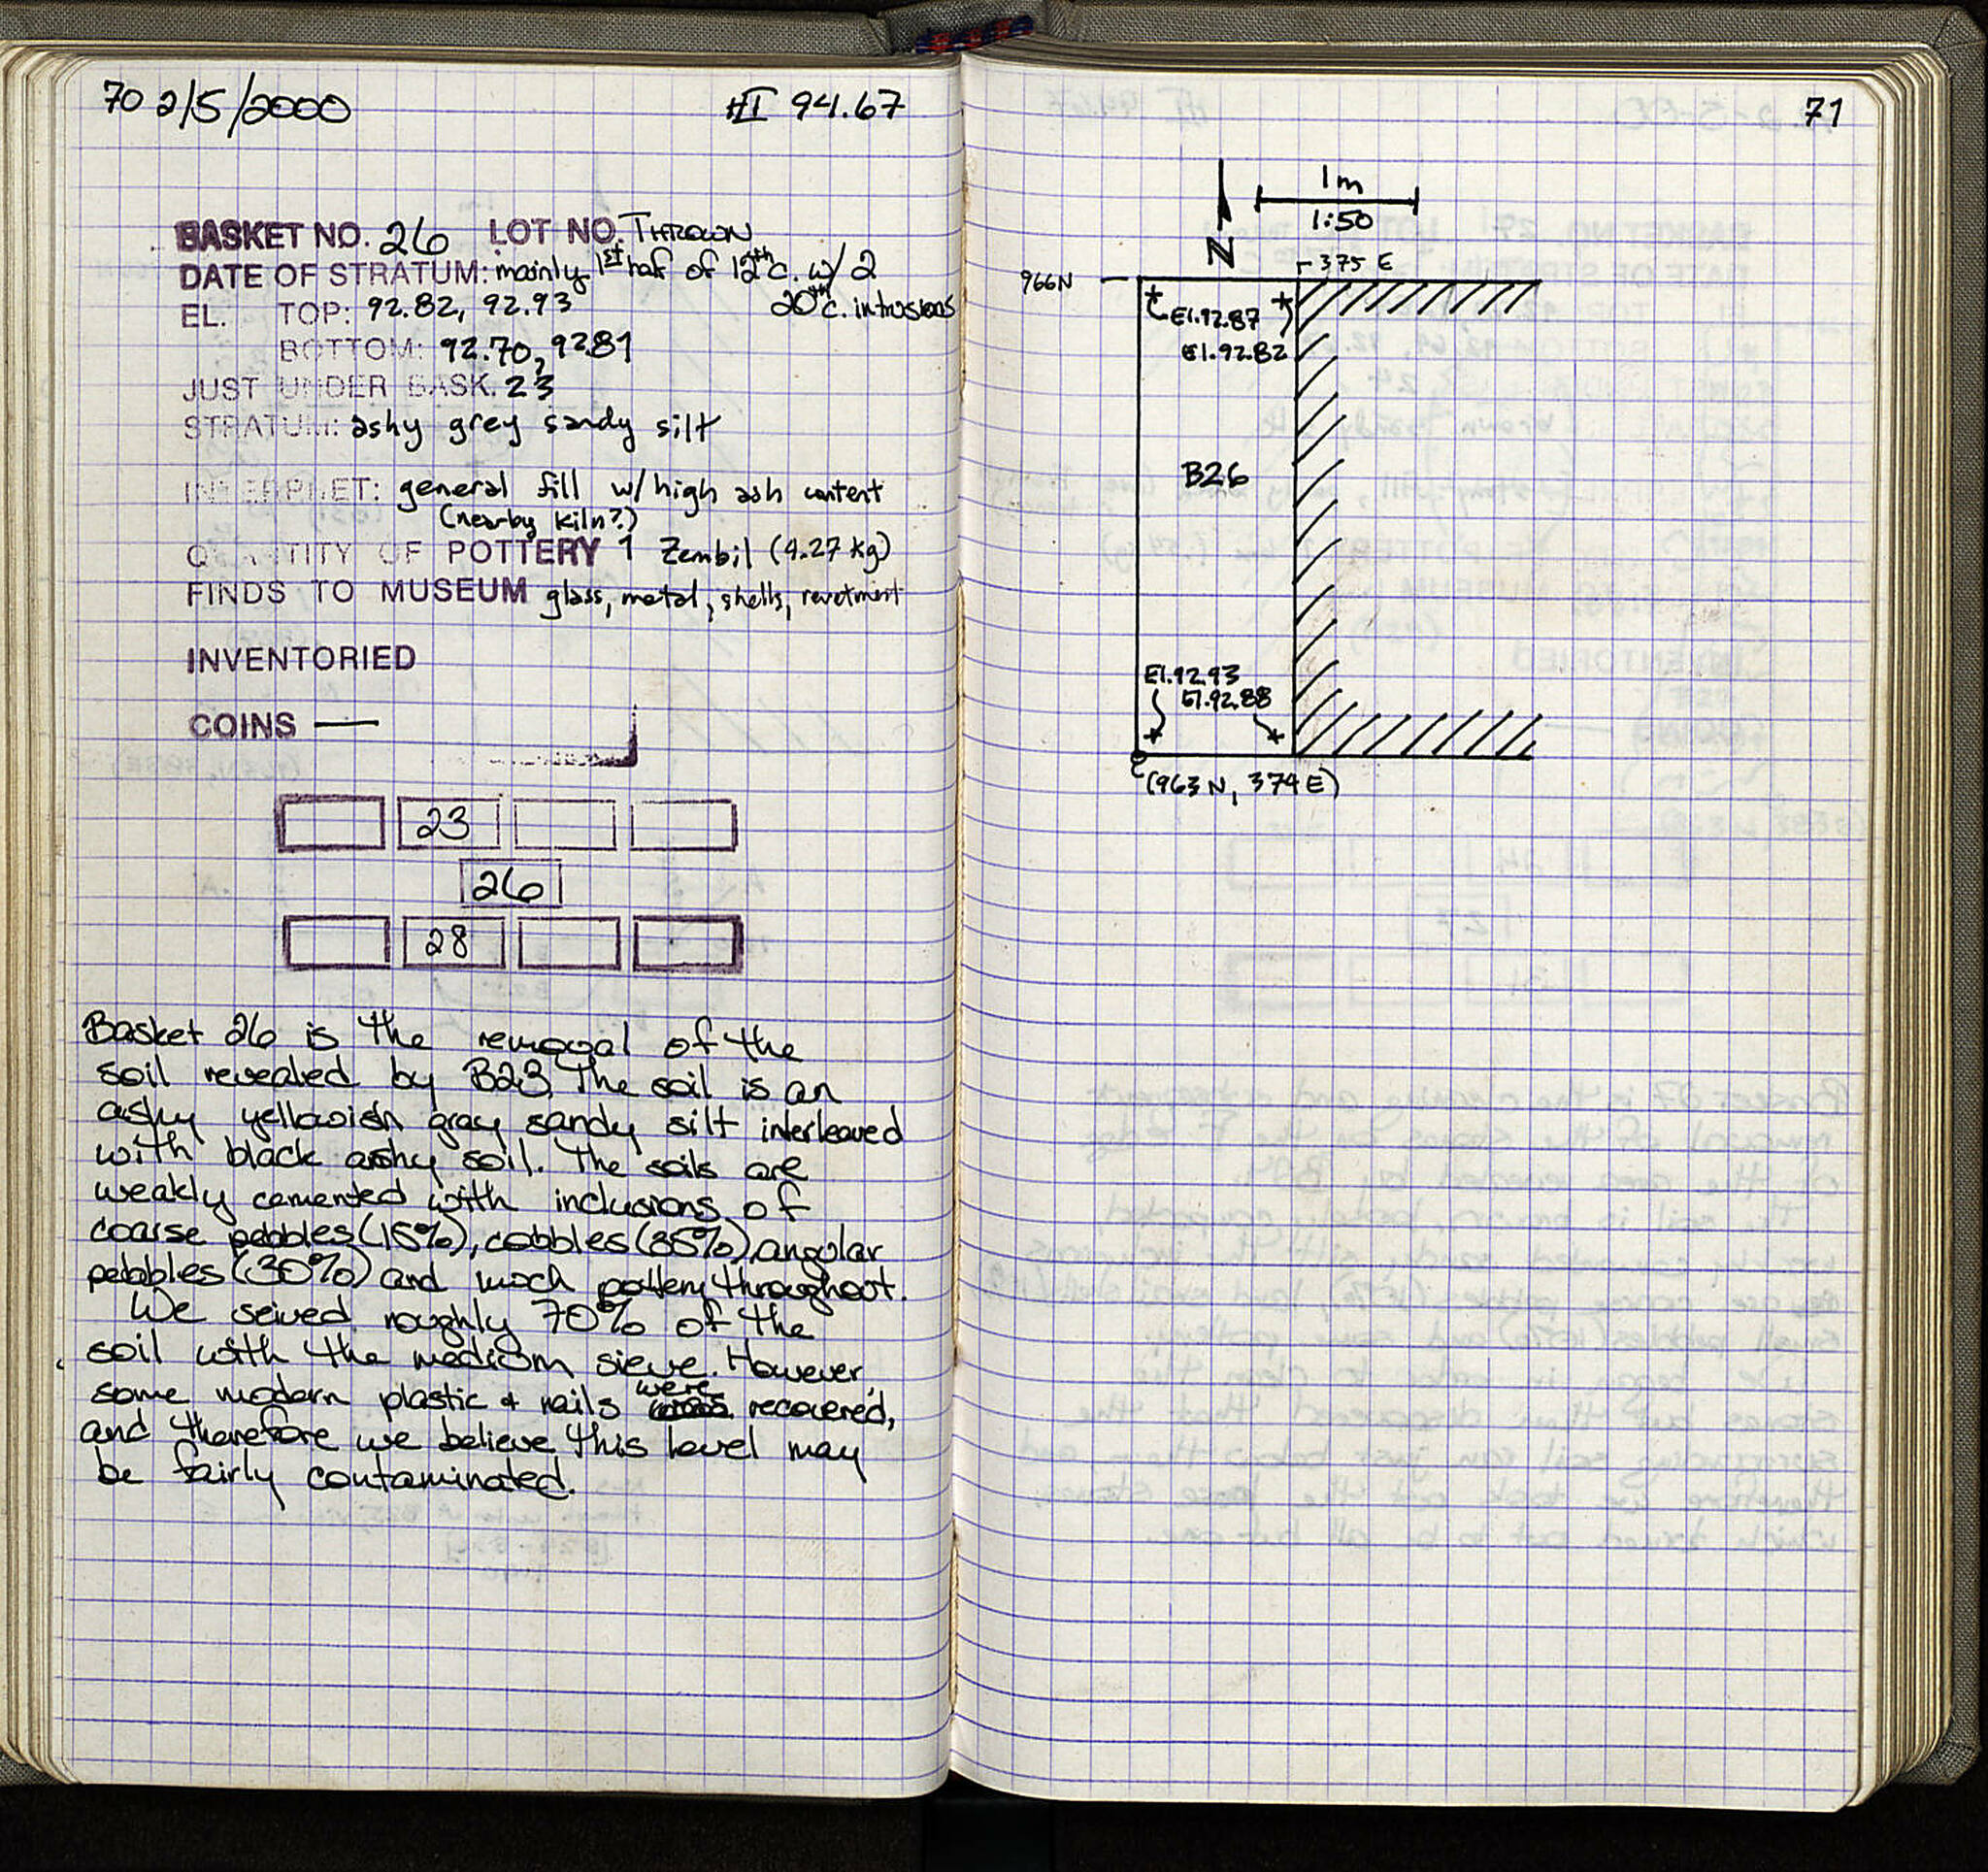 70 2/5/2000
HI 94.67
BASKET NO. 26 LOT NO. THROWN
DATE OF STRATUM: mainly 1st half of 12th c. w/ 2
20th c. intrusions
EL. TOP: 92.82, 92.93
BOTTOM: 92.70, 92.81
JUST UNDER BASK. 23
STRATUM: ashy grey sandy silt
INTERPRET: general fill w/ high ash content
(nearby kiln?)
QUANTITY OF POTTERY 1 Zembil (4.27 kg)
FINDS TO MUSEUM glass, metal, shells, revetment
INVENTORIED
COINS —
23
26
28
Basket 26 is the removal of the
soil revealed by B23. The soil is an
ashy yellowish gray sandy silt interleaved
with black ashy soil. The soils are
weakly cemented with inclusions of
coarse pebbles (15%), cobbles (35%), angular
pebbles (30%) and much pottery throughout.
We seived roughly 70% of the
soil with the medium sieve. However,
some modern plastic + nails were recovered,
and therefore we believe this level may
be fairly contaminated.
71
1m
1:50
N
375 E
966N
El.92.87
El.92.82
B26
El.92.93
El.92.88
(963 N, 374 E)